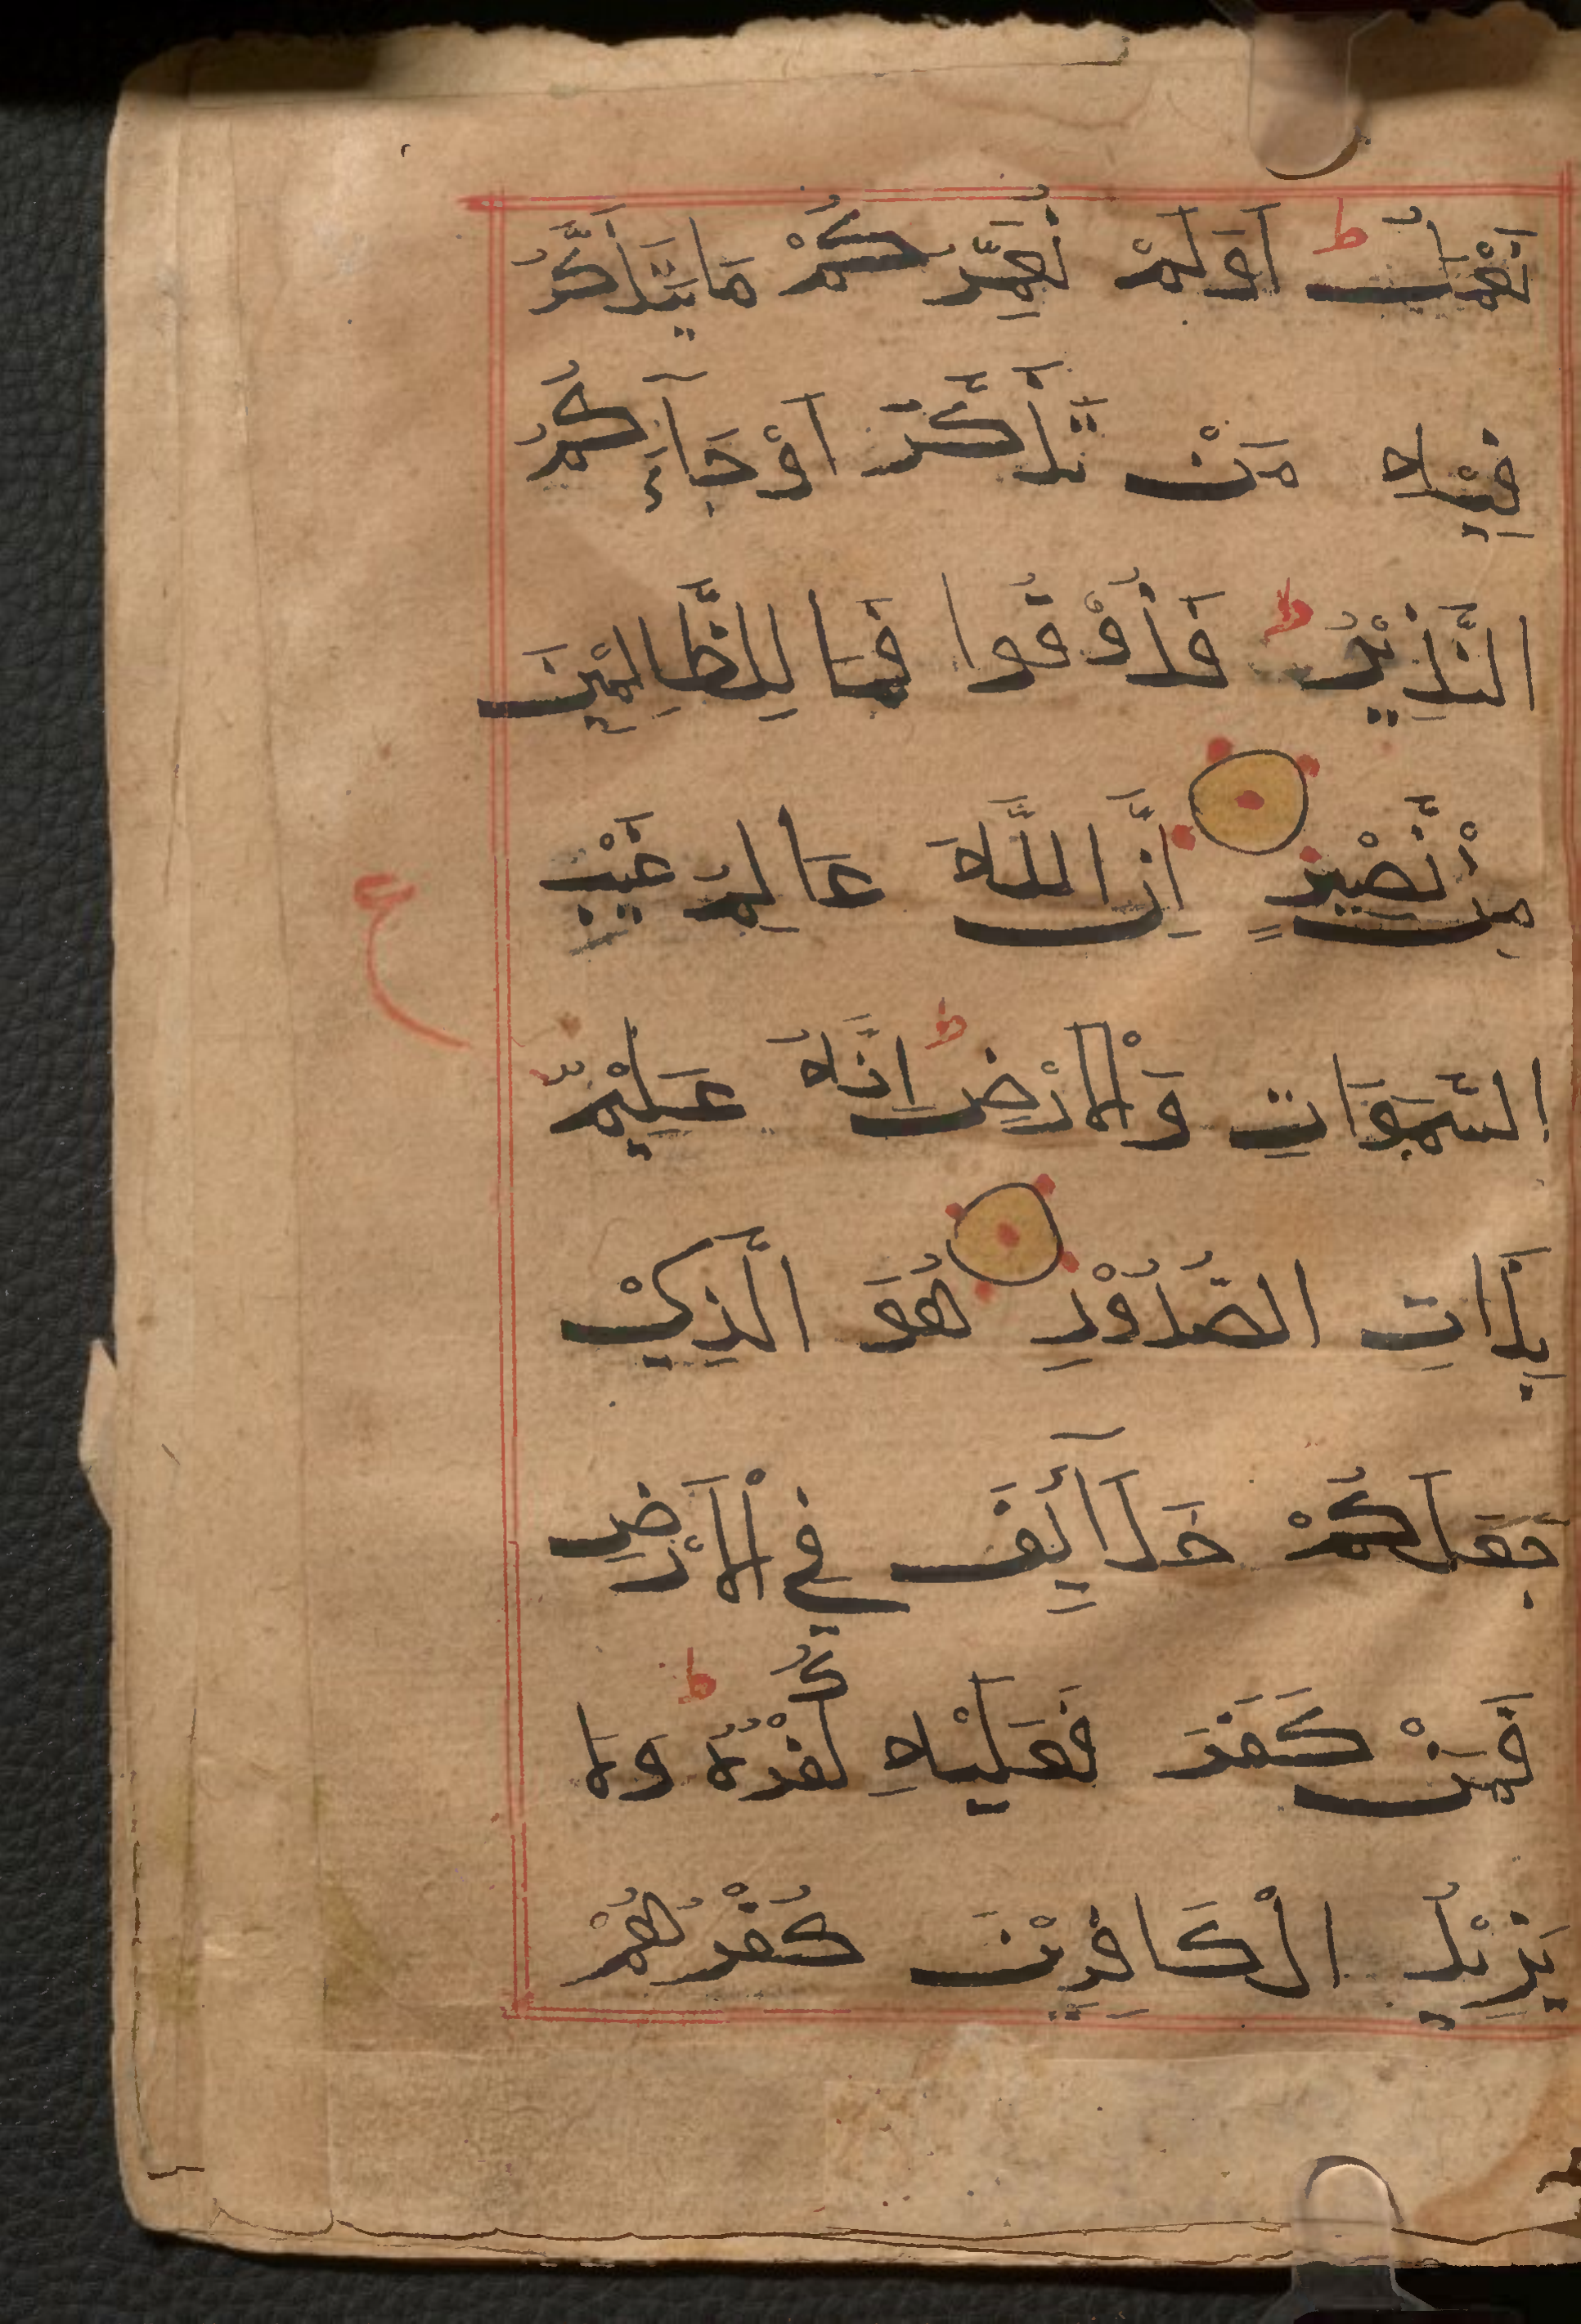 نَعْمَلُ ط اَوَلَمْ نُعَمِّرْكُمْ مَا يَتَذَكَّرُ
فِيْهِ مَنْ تَذَكَّرَ اَوْ جَآءَكُمُ
النَّذِيْرُ ط فَذُوْقُوا فَمَا لِلظَّالِمِيْنَ
مِنْ نَّصِيْرٍ اِنَّ اللَّهَ عَالِمُ غَيْبِ
السَّمَوَاتِ وَالْاَرْضِ ط اِنَّهُ عَلِيْمٌ
بِذَاتِ الصُّدُوْرِ هُوَ الَّذِيْ
جَعَلَكُمْ خَلَآئِفَ فِي الْاَرْضِ
فَمَنْ كَفَرَ فَعَلَيْهِ كُفْرُهُ ط وَلَا
يَزِيْدُ الْكَافِرِيْنَ كُفْرُهُمْ
ع